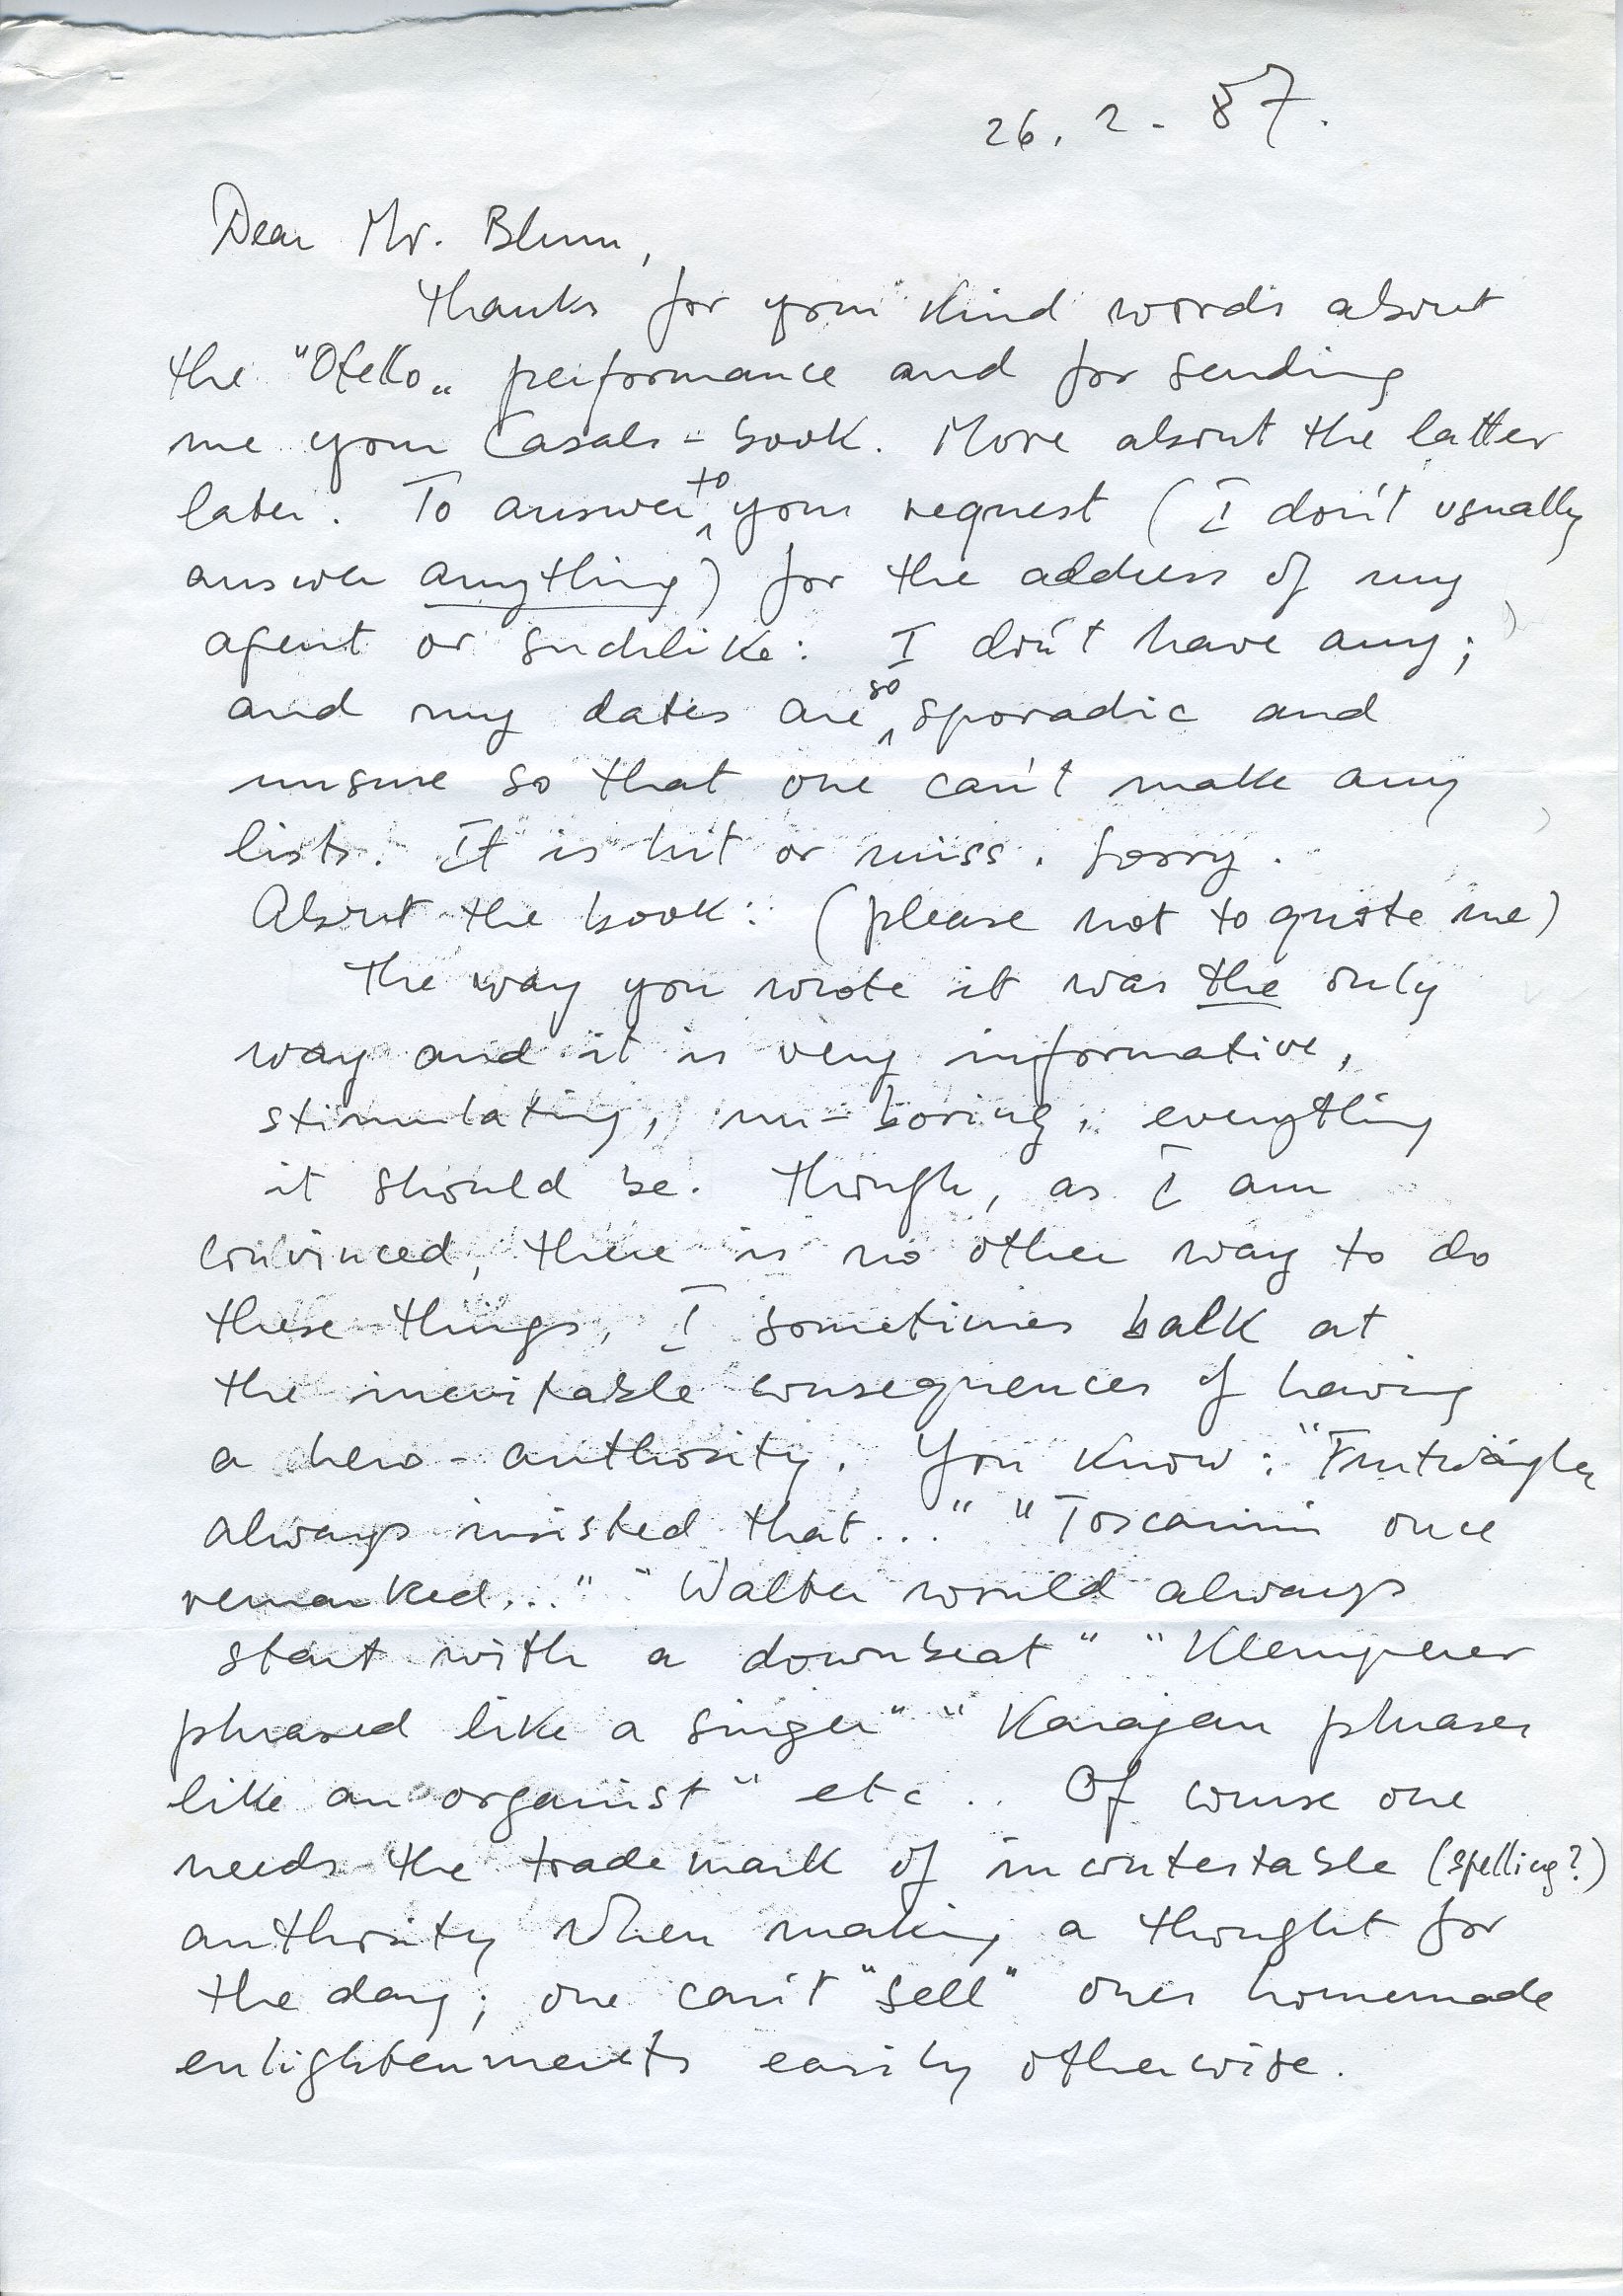 26. 2. 87.
Dear Mr. Blum,
thanks for your kind words about
the "Otello" performance and for sending
me your Casals-book. More about the latter
later. To answer to your request (I don't usually
answer anything) for the address of my
agent or suchlike: I don't have any;
and my dates are so sporadic and
unsure so that one can't make any
lists. It is hit or miss. Sorry.
About the book: (please not to quote me)
The way you wrote it was the only
way and it is very informative,
stimulating, un-boring, everything
it should be. Though, as I am
convinced, there is no other way to do
these things, I sometimes balk at
the inevitable consequences of having
a hero-authority. You know: "Furtwängler
always insisted that..." "Toscanini once
remarked..." "Walter would always
start with a downbeat" "Klemperer
phrased like a singer" "Karajan phrases
like an organist" etc.. Of course one
needs the trademark of incontestable (spelling?)
authority when making a thought for
the day; one can't "sell" ones homemade
enlightenments easily otherwise.